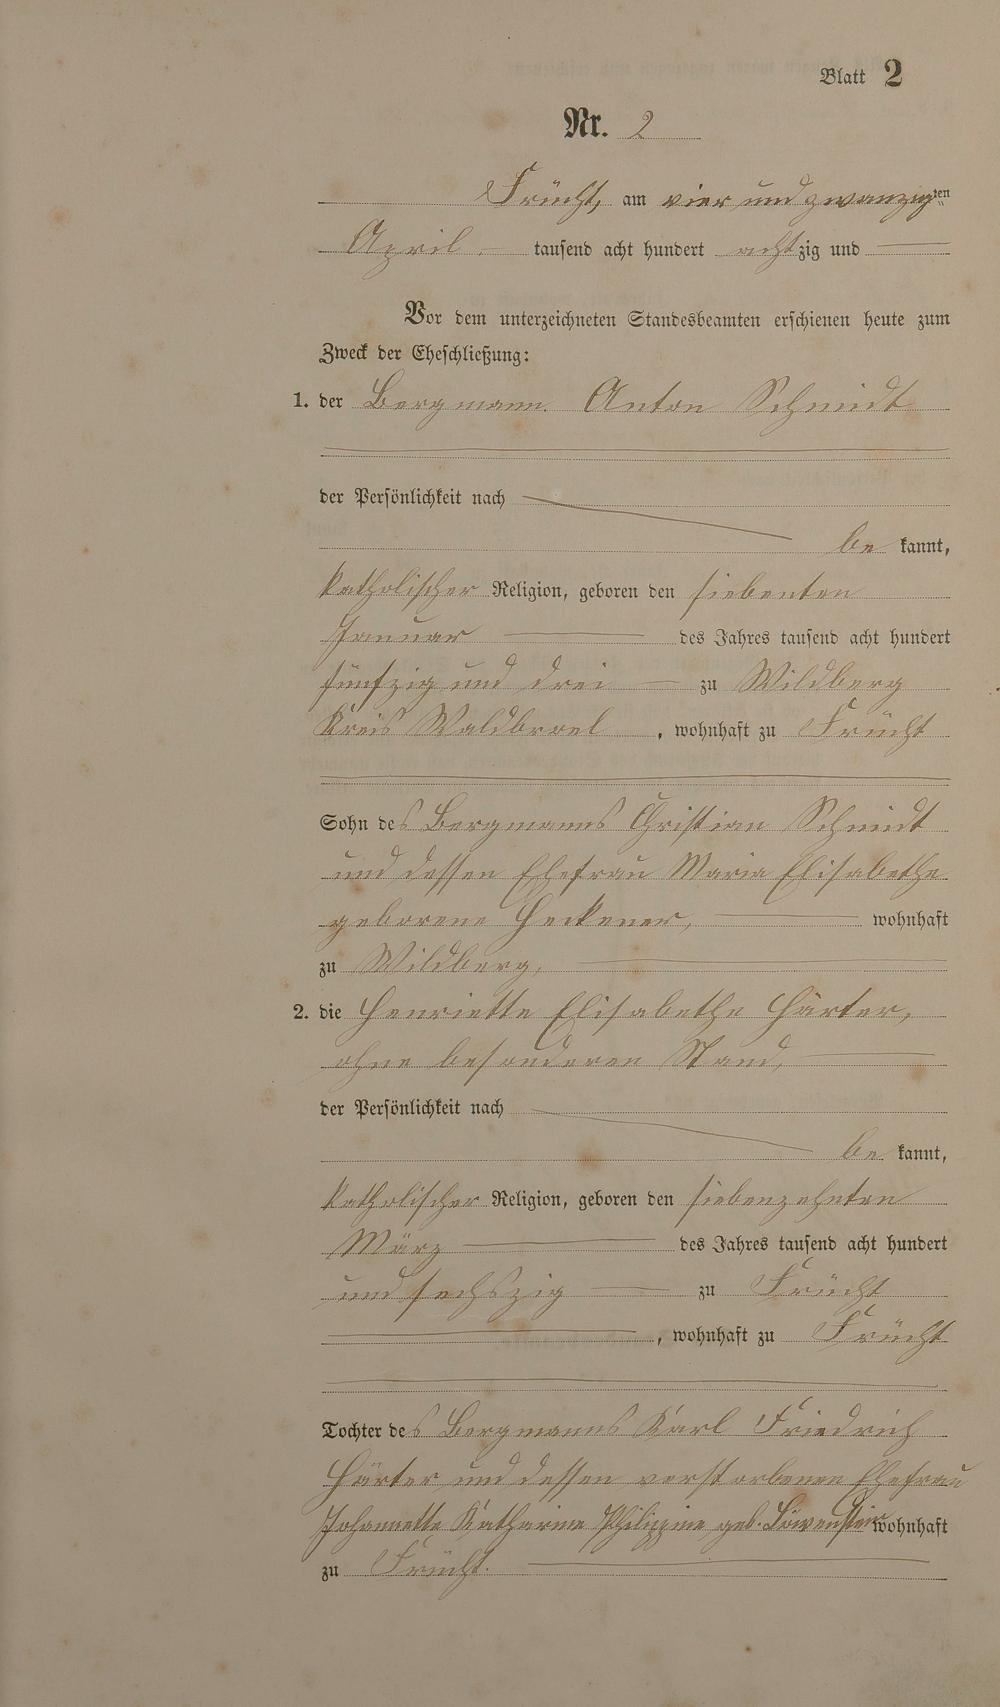 Blatt 2
Nr. 2
Frücht, am vier und zwanzigten
April tausend acht hundert achtzig und
Vor dem unterzeichneten Standesbeamten erschienen heute zum
Zweck der Eheschließung:
1. der Bergmann Anton Schmidt
der Persönlichkeit nach
be kannt,
katholischer Religion, geboren den siebenten
Januar des Jahres tausend acht hundert
fünfzig und drei zu Wildberg
Kreis Waldbroel, wohnhaft zu Frücht
Sohn des Bergmanns Christian Schmidt
und dessen Ehefrau Maria Elisabethe
geborene Heckener, wohnhaft
zu Wildberg,
2. die Henriette Elisabethe Härter,
ohne besonderen Stand,
der Persönlichkeit nach
be kannt,
katholischer Religion, geboren den siebenzehnten
März des Jahres tausend acht hundert
und sechszig zu Frücht
, wohnhaft zu Frücht
Tochter des Bergmanns Karl Friedrich
Härter und dessen verstorbenen Ehefrau
Johannette Katharine Philippine geb. Löwenstein wohnhaft
zu Frücht.